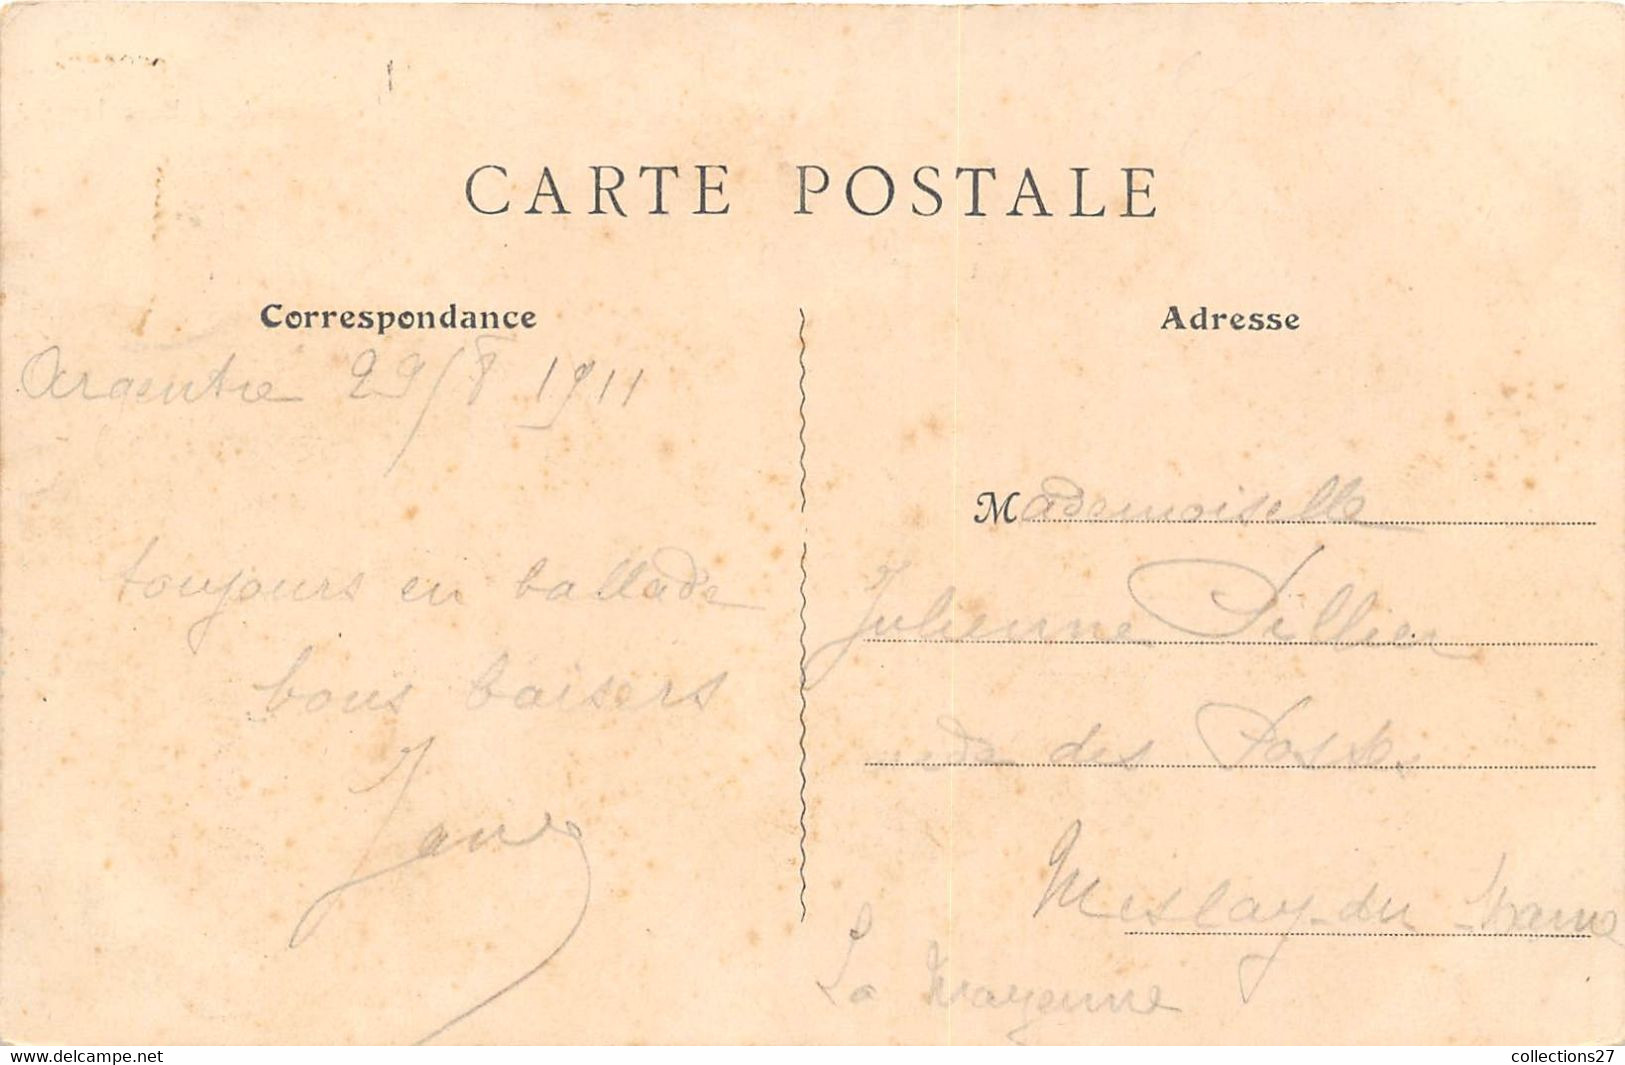 CARTE POSTALE
Correspondance
Argentre 29/8 1911
toujours en ballade
bons baisers
Jane
Adresse
Mademoiselle
Julienne Pillier
des Postes
Meslay-du-Maine
La Mayenne
www.delcampe.net
collections27